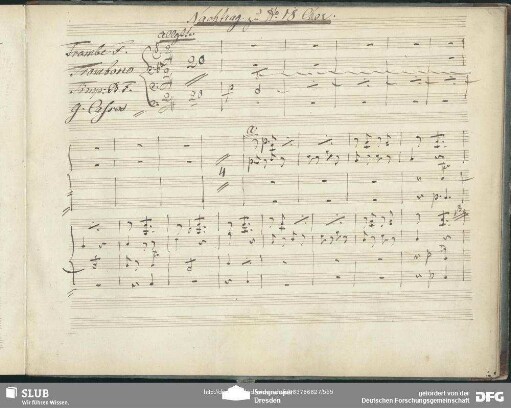 Nachtrag zu No 18 Chor.
Allegro
Trombe F.
Trombono
Timp: B F.
G. Cassa
20
20
4
SLUB
Wir führen Wissen.
Dresden
gefördert von der
Deutschen Forschungsgemeinschaft
DFG